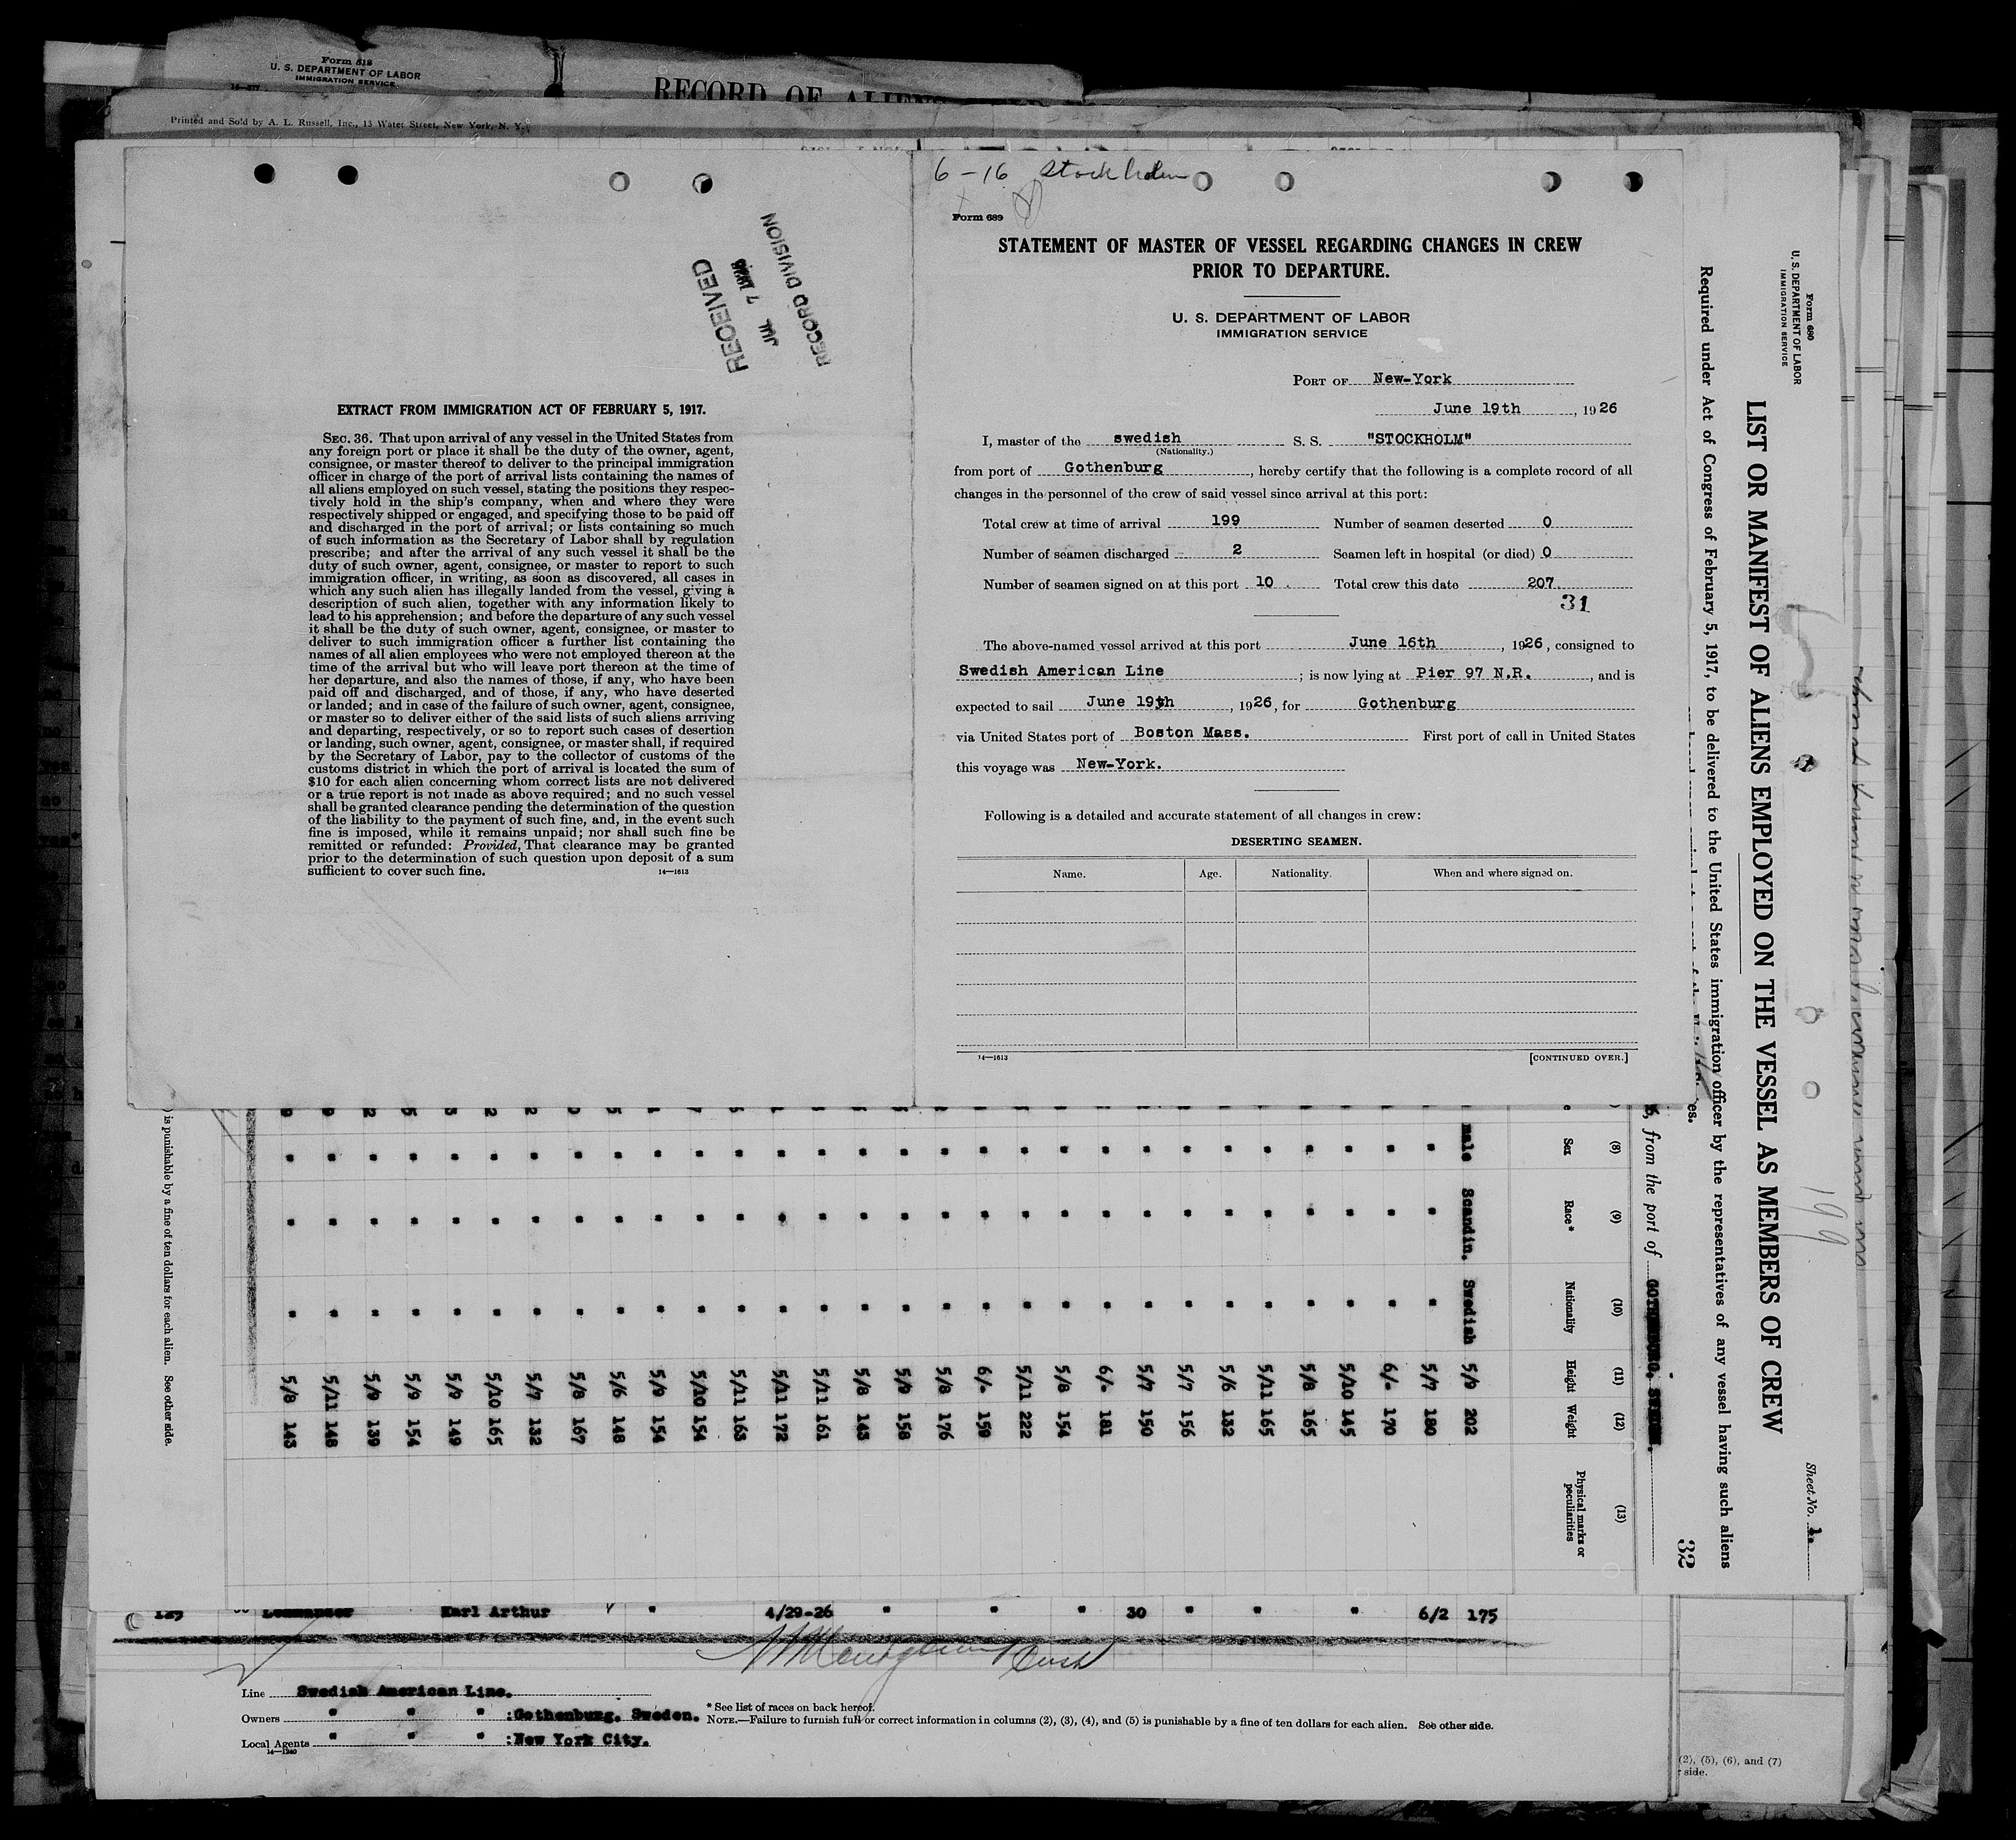 Form 512
U. S. DEPARTMENT OF LABOR
IMMIGRATION SERVICE
RECORD OF ALIENS
Printed and Sold by A. L. Russell, Inc., 15 Water Street, New York, N. Y.
RECEIVED
JUL 7 1926
RECORD DIVISION
EXTRACT FROM IMMIGRATION ACT OF FEBRUARY 5, 1917.
SEC. 36. That upon arrival of any vessel in the United States from
any foreign port or place it shall be the duty of the owner, agent,
consignee, or master thereof to deliver to the principal immigration
officer in charge of the port of arrival lists containing the names of
all aliens employed on such vessel, stating the positions they respec-
tively hold in the ship's company, when and where they were
respectively shipped or engaged, and specifying those to be paid off
and discharged in the port of arrival; or lists containing so much
of such information as the Secretary of Labor shall by regulation
prescribe; and after the arrival of any such vessel it shall be the
duty of such owner, agent, consignee, or master to report to such
immigration officer, in writing, as soon as discovered, all cases in
which any such alien has illegally landed from the vessel, giving a
description of such alien, together with any information likely to
lead to his apprehension; and before the departure of any such vessel
it shall be the duty of such owner, agent, consignee, or master to
deliver to such immigration officer a further list containing the
names of all alien employees who were not employed thereon at the
time of the arrival but who will leave port thereon at the time of
her departure, and also the names of those, if any, who have been
paid off and discharged, and of those, if any, who have deserted
or landed; and in case of the failure of such owner, agent, consignee,
or master so to deliver either of the said lists of such aliens arriving
and departing, respectively, or so to report such cases of desertion
or landing, such owner, agent, consignee, or master shall, if required
by the Secretary of Labor, pay to the collector of customs of the
customs district in which the port of arrival is located the sum of
$10 for each alien concerning whom correct lists are not delivered
or a true report is not made as above required; and no such vessel
shall be granted clearance pending the determination of the question
of the liability to the payment of such fine, and, in the event such
fine is imposed, while it remains unpaid; nor shall such fine be
remitted or refunded: Provided, That clearance may be granted
prior to the determination of such question upon deposit of a sum
sufficient to cover such fine. 14—1613
6-16 Stockholm
Form 689
STATEMENT OF MASTER OF VESSEL REGARDING CHANGES IN CREW
PRIOR TO DEPARTURE.
U. S. DEPARTMENT OF LABOR
IMMIGRATION SERVICE
PORT OF New-York
June 19th, 1926
I, master of the swedish S. S. "STOCKHOLM"
(Nationality.)
from port of Gothenburg, hereby certify that the following is a complete record of all
changes in the personnel of the crew of said vessel since arrival at this port:
Total crew at time of arrival 199 Number of seamen deserted 0
Number of seamen discharged 2 Seamen left in hospital (or died) 0
Number of seamen signed on at this port 10 Total crew this date 207
31
The above-named vessel arrived at this port June 16th, 1926, consigned to
Swedish American Line; is now lying at Pier 97 N.R., and is
expected to sail June 19th, 1926, for Gothenburg
via United States port of Boston Mass. First port of call in United States
this voyage was New-York.
Following is a detailed and accurate statement of all changes in crew:
DESERTING SEAMEN.
Name. Age. Nationality. When and where signed on.
14—1613 [CONTINUED OVER.]
Form 680
U. S. DEPARTMENT OF LABOR
IMMIGRATION SERVICE
LIST OR MANIFEST OF ALIENS EMPLOYED ON THE VESSEL AS MEMBERS OF CREW
Required under Act of Congress of February 5, 1917, to be delivered to the United States immigration officer by the representatives of any vessel having such aliens
Sheet No. 1.
199
32
, from the port of GOTHENBURG, SWEDEN.
(8) (9) (10) (11) (12) (13)
Sex Race* Nationality Height Weight Physical marks or peculiarities
male Scandin. Swedish 5/9 202
" " " 5/7 180
" " " 6/- 170
" " " 5/10 145
" " " 5/8 165
" " " 5/11 165
" " " 5/6 132
" " " 5/7 156
" " " 5/7 150
" " " 6/- 181
" " " 5/8 154
" " " 5/11 222
" " " 6/- 159
" " " 5/8 176
" " " 5/9 158
" " " 5/8 143
" " " 5/11 161
" " " 5/11 172
" " " 5/11 163
" " " 5/10 154
" " " 5/9 154
" " " 5/6 148
" " " 5/8 167
" " " 5/7 132
" " " 5/10 165
" " " 5/9 149
" " " 5/9 154
" " " 5/9 139
" " " 5/11 148
" " " 5/8 143
) is punishable by a fine of ten dollars for each alien. See other side.
Karl Arthur " 4/29-26 " " " 30 " " " 6/2 175
Line Swedish American Line.
Owners " " " :Gothenburg, Sweden.
Local Agents " " " :New York City.
14—1240
* See list of races on back hereof.
NOTE.—Failure to furnish full or correct information in columns (2), (3), (4), and (5) is punishable by a fine of ten dollars for each alien. See other side.
(2), (5), (6), and (7)
side.